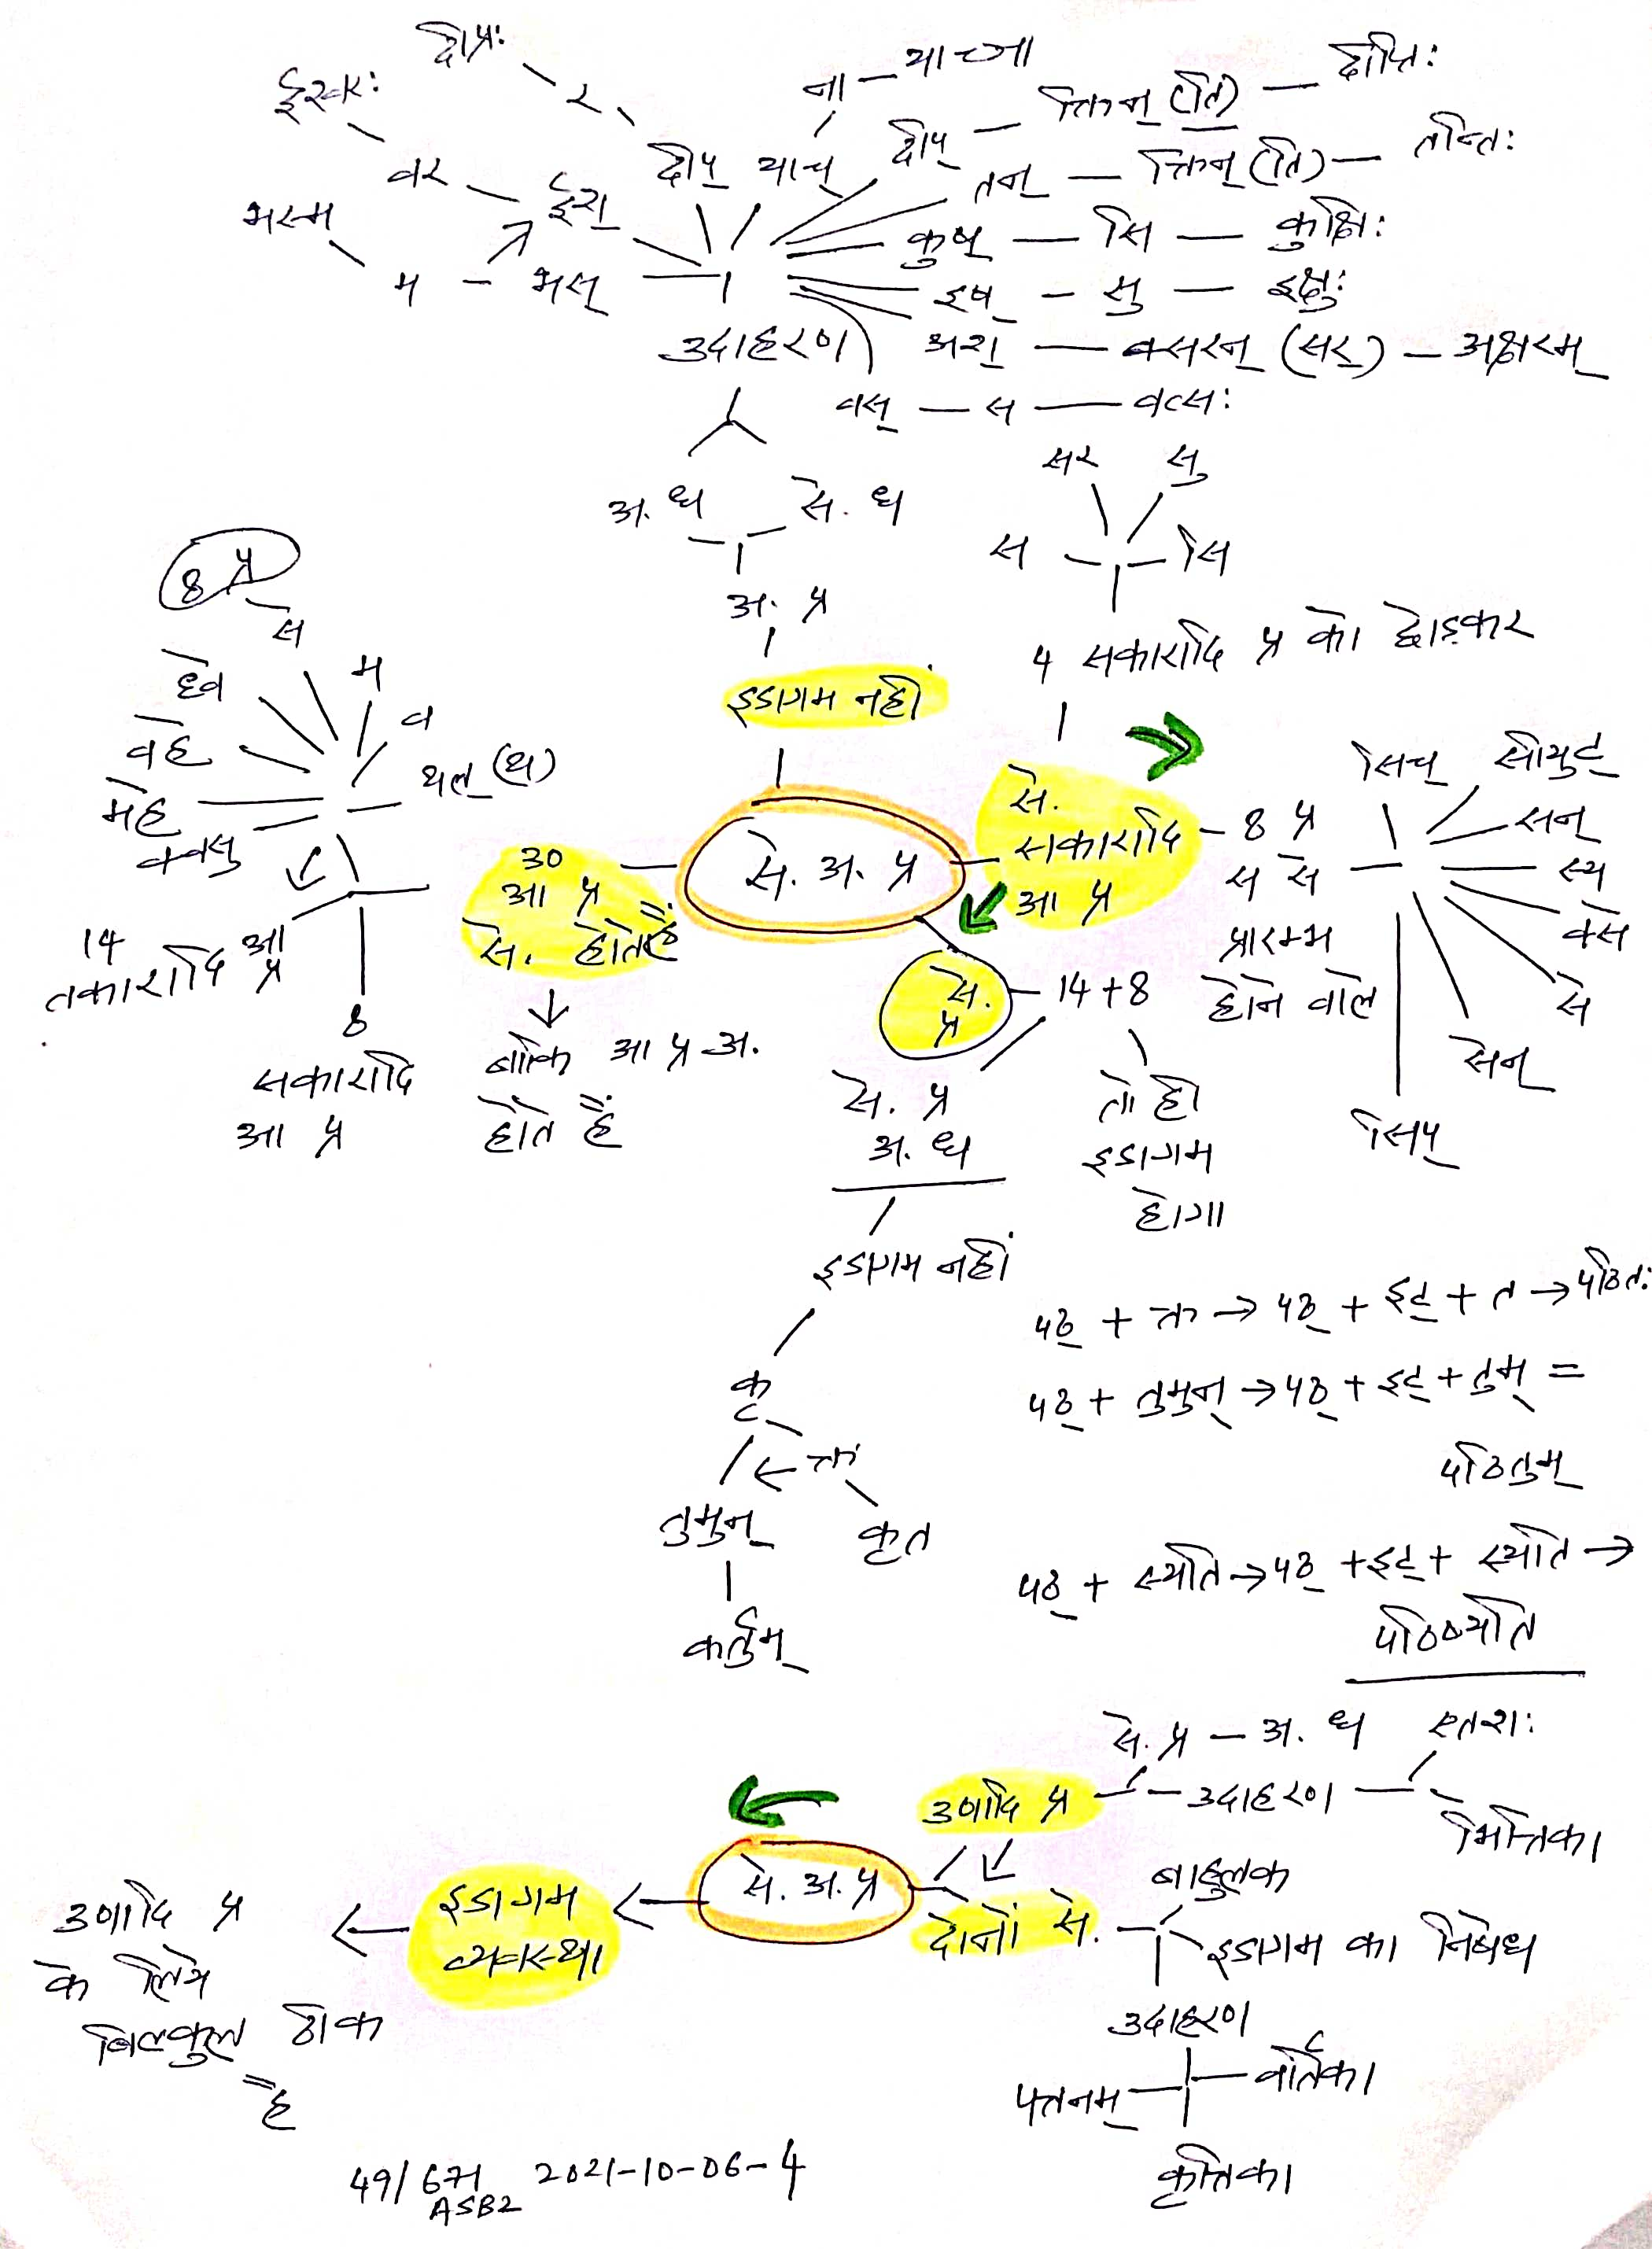 दीप्रः
ईश्वरः
र
ना — याच्ञा
क्तिन् (ति) — दीप्तिः
वर
ईश्
दीप्
याच्
दीप्
तन् — क्तिन् (ति) — तन्तिः
भस्म
म - भस्
कुष् — सि — कुक्षिः
इष् - सु — इक्षुः
उदाहरण
अश् — क्सरन् (सर) — अक्षरम्
वस् — स — वत्सः
अ. ध
से. ध
सर
सु
स
सि
अ. प्र
4 सकारादि प्र को छोड़कर
इडागम नहीं
8 प्र
से
ध्वे
म
वहे
व
महे
थल् (थ)
क्वसु
14
तकारादि आ
प्र
8
सकारादि
आ प्र
30
आ प्र
से. होते हैं
बाकि आ प्र अ.
होते हैं
से. अ. प्र
से.
सकारादि
आ प्र
- 8 प्र
स से
प्रारम्भ
होने वाले
सिच्
सीयुट्
सन्
स्य
क्से
से
सेन्
सिप्
से.
प्र
14 + 8
से. प्र
अ. ध
तो ही
इडागम
होगा
इडागम नहीं
कृ
क्त
तुमुन्
कृत
कर्तुम्
पठ् + क्त → पठ् + इट् + त → पठितः
पठ् + तुमुन् → पठ् + इट् + तुम् =
पठितुम्
पठ् + स्यति → पठ् + इट् + स्यति →
पठिष्यति
से. प्र — अ. ध
एतशः
उणादि प्र
- उदाहरण
भित्तिका
से. अ. प्र
दोनों से.
बाहुलक
इडागम का निषेध
उदाहरण
पत्तनम्
वर्तिका
कृत्तिका
इडागम
व्यवस्था
उणादि प्र
के लिये
बिल्कुल ठीक
है
49/671 2021-10-06-4
ASB2